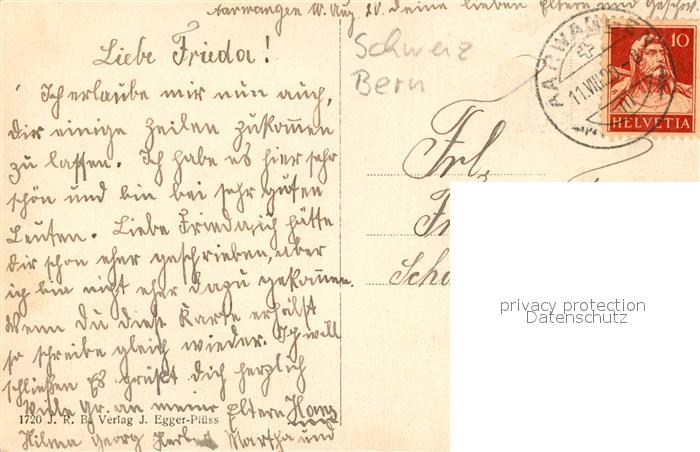 Aarwangen 10. Aug. 20. deine lieben Eltern und Geschw.
Liebe Frieda!
Ich erlaube mir nun auch,
dir einige Zeilen zukommen
zu lassen. Ich habe es hier sehr
schön und bin bei sehr guten
Leuten. Liebe Frieda, ich hätte
dir schon eher geschrieben, aber
ich bin nicht eher dazu gekommen.
Wenn du diese Karte erhälst
so schreibe gleich wieder. Ich will
schließen Es grüßt dich herzlich
Viele Gr. an meine Eltern Hans
Hilma Georg Herbert Martha und
1720 J. R. B. Verlag J. Egger-Plüss
Schweiz
Bern
AARWANGEN
11.VIII.20
10
HELVETIA
Frl.
privacy protection
Datenschutz